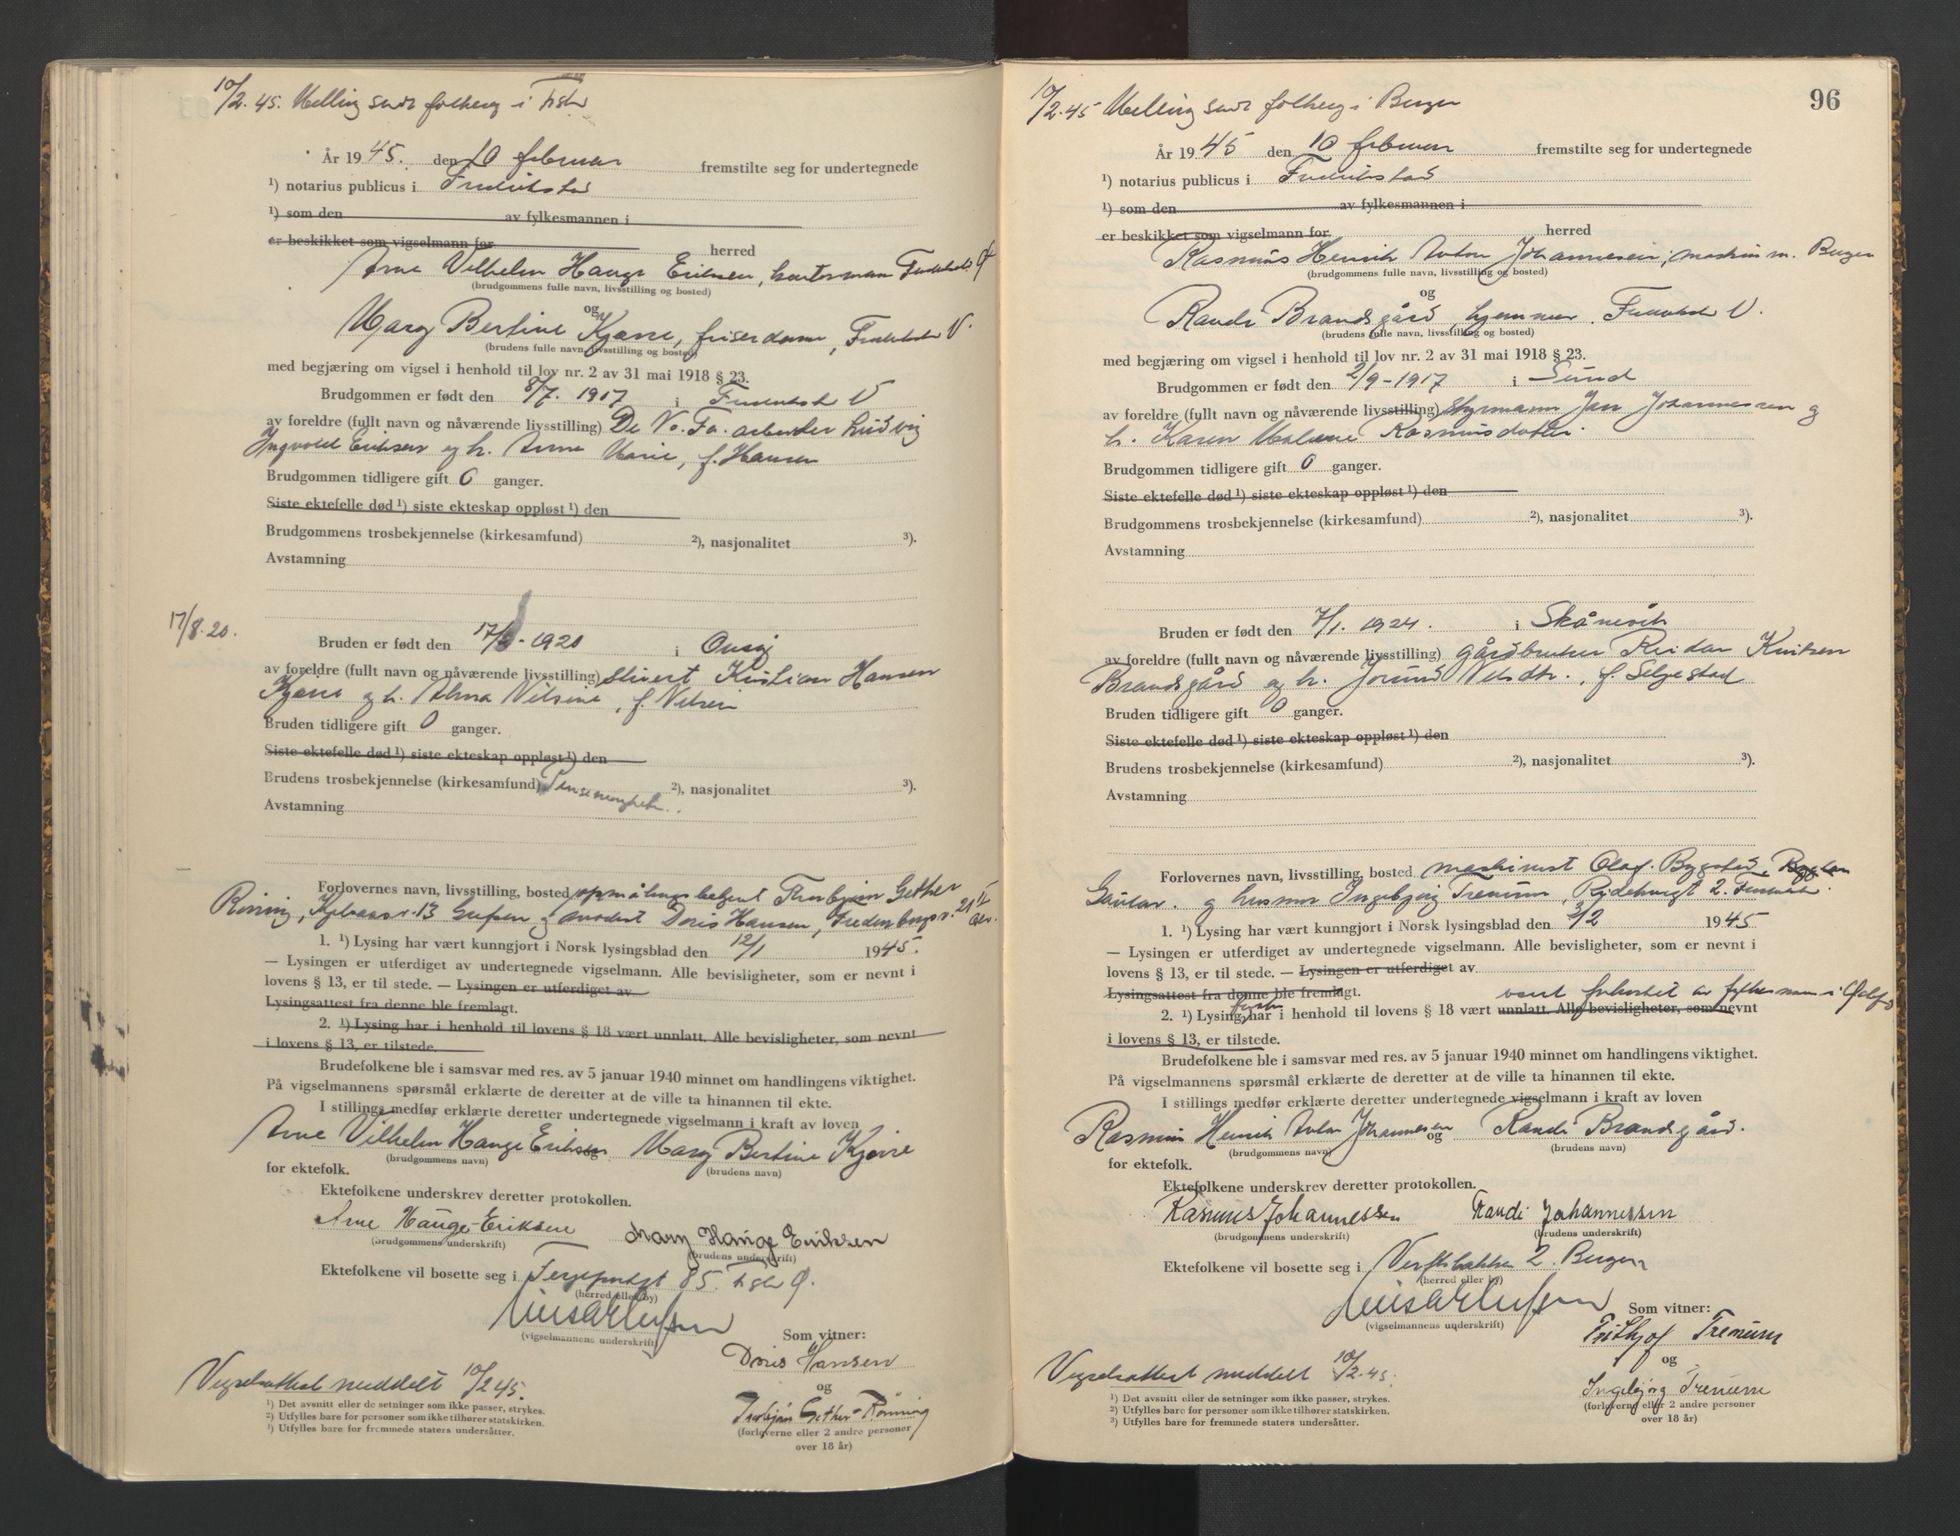 10/2.45. Melling sendt folkereg i Fstad
År 1945. den 10 februar fremstilte seg for undertegnede
¹) notarius publicus i Fredrikstad
¹) som den av fylkesmannen i
er beskikket som vigselmann for herred
Arne Vilhelm Hauge Eriksen, kontormann Fredrikstad Ø
(brudgommens fulle navn, livsstilling og bosted)
og
Mary Bertine Kjærre, friserdame, Fredrikstad V.
(brudens fulle navn, livsstilling og bosted)
med begjæring om vigsel i henhold til lov nr. 2 av 31 mai 1918 § 23.
Brudgommen er født den 8/7. 1917 i Fredrikstad V
av foreldre (fullt navn og nåværende livsstilling) De No. Fa. arbeider Ludvig
Ingvald Eriksen og h. Anna Marie, f. Hansen
Brudgommen tidligere gift 0 ganger.
Siste ektefelle død ¹) siste ekteskap oppløst ¹) den
Brudgommens trosbekjennelse (kirkesamfund) ²), nasjonalitet ³).
Avstamning
17/8.20.
Bruden er født den 17/8-1920 i Onsøy
av foreldre (fullt navn og nåværende livsstilling) Slivert Kristian Hansen
Kjærre og h. Alma Nilsine, f. Nilsen
Bruden tidligere gift 0 ganger.
Siste ektefelle død ¹) siste ekteskap oppløst ¹) den
Brudens trosbekjennelse (kirkesamfund) Pinsemenighet ²), nasjonalitet ³).
Avstamning
Forlovernes navn, livsstilling, bosted oppmålingsbetjent Thorbjørn Gether
Rønning, 13 og modist Doris Hansen, Fredenborgv. 21 II
1. ¹) Lysing har vært kunngjort i Norsk lysingsblad den 12/1 1945.
— Lysingen er utferdiget av undertegnede vigselmann. Alle bevisligheter, som er nevnt i
lovens § 13, er til stede. — Lysingen er utferdiget av
Lysingsattest fra denne ble fremlagt.
2. ¹) Lysing har i henhold til lovens § 18 vært unnlatt. Alle bevisligheter, som nevnt
i lovens § 13, er tilstede.
Brudefolkene ble i samsvar med res. av 5 januar 1940 minnet om handlingens viktighet.
På vigselmannens spørsmål erklærte de deretter at de ville ta hinannen til ekte.
I stillings medfør erklærte deretter undertegnede vigselmann i kraft av loven
Arne Vilhelm Hauge Eriksen og Mary Bertine Kjærre
(brudgommens navn) (brudens navn)
for ektefolk.
Ektefolkene underskrev deretter protokollen.
Arne Hauge-Eriksen Mary Hauge Eriksen
(brudgommens underskrift) (brudens underskrift)
Ektefolkene vil bosette seg i 85. Fstad Ø.
(herred eller by)
(vigselmannens underskrift)
Som vitner:
Doris Hansen
og
Thorbjørn Gether-Rönning
(forloverne eller 2 andre personer
over 18 år)
Vigselsattest meddelt 10/2 45.
¹) Det avsnitt eller de setninger som ikke passer, strykes.
²) Utfylles bare for personer som ikke tilhører statskirken.
³) Utfylles bare for fremmede staters undersåtter.
96
10/2.45 Melling sendt folkereg i Bergen
År 1945 den 10 februar fremstilte seg for undertegnede
¹) notarius publicus i Fredrikstad
¹) som den av fylkesmannen i
er beskikket som vigselmann for herred
Rasmus Henrik Anton Johannessen, maskinm. Bergen
(brudgommens fulle navn, livsstilling og bosted)
og
Randi Brandsgård, hjemmev. Fredrikstad V.
(brudens fulle navn, livsstilling og bosted)
med begjæring om vigsel i henhold til lov nr. 2 av 31 mai 1918 § 23.
Brudgommen er født den 2/9-1917 i Sund
av foreldre (fullt navn og nåværende livsstilling) styrmann Jan Johannessen og
h. Karen Malene Rasmusdatter
Brudgommen tidligere gift 0 ganger.
Siste ektefelle død ¹) siste ekteskap oppløst ¹) den
Brudgommens trosbekjennelse (kirkesamfund) ²), nasjonalitet ³).
Avstamning
Bruden er født den 7/1. 1924. i Skånevik
av foreldre (fullt navn og nåværende livsstilling) gårdbruker Reidar Knutsen
Brandsgård og h. Jorund Nilsdtr., f. Seljestad
Bruden tidligere gift 0 ganger.
Siste ektefelle død ¹) siste ekteskap oppløst ¹) den
Brudens trosbekjennelse (kirkesamfund) ²), nasjonalitet ³).
Avstamning
Forlovernes navn, livsstilling, bosted maskinist Olaf Bygstad,
Gaular. og husmor Ingebjørg Trenum, 2. Fredrikstad.
1. ¹) Lysing har vært kunngjort i Norsk lysingsblad den 3/2 1945
— Lysingen er utferdiget av undertegnede vigselmann. Alle bevisligheter, som er nevnt i
lovens § 13, er til stede. — Lysingen er utferdiget av
Lysingsattest fra denne ble fremlagt. vært forkortet av fylkesmann i Østfold
2. ¹) Lysing har i henhold til lovens § 18 vært unnlatt. Alle bevisligheter, som nevnt
i lovens § 13, er tilstede.
Brudefolkene ble i samsvar med res. av 5 januar 1940 minnet om handlingens viktighet.
På vigselmannens spørsmål erklærte de deretter at de ville ta hinannen til ekte.
I stillings medfør erklærte deretter undertegnede vigselmann i kraft av loven
Rasmus Henrik Anton Johannessen og Randi Brandsgård.
(brudgommens navn) (brudens navn)
for ektefolk.
Ektefolkene underskrev deretter protokollen.
Rasmus Johannessen Randi Johannessen
(brudgommens underskrift) (brudens underskrift)
Ektefolkene vil bosette seg i Verftsbakken 2. Bergen
(herred eller by)
(vigselmannens underskrift)
Som vitner:
Frithjof Trenum
og
Ingebjørg Trenum
(forloverne eller 2 andre personer
over 18 år)
Vigselsattest meddelt 10/2.45.
¹) Det avsnitt eller de setninger som ikke passer, strykes.
²) Utfylles bare for personer som ikke tilhører statskirken.
³) Utfylles bare for fremmede staters undersåtter.